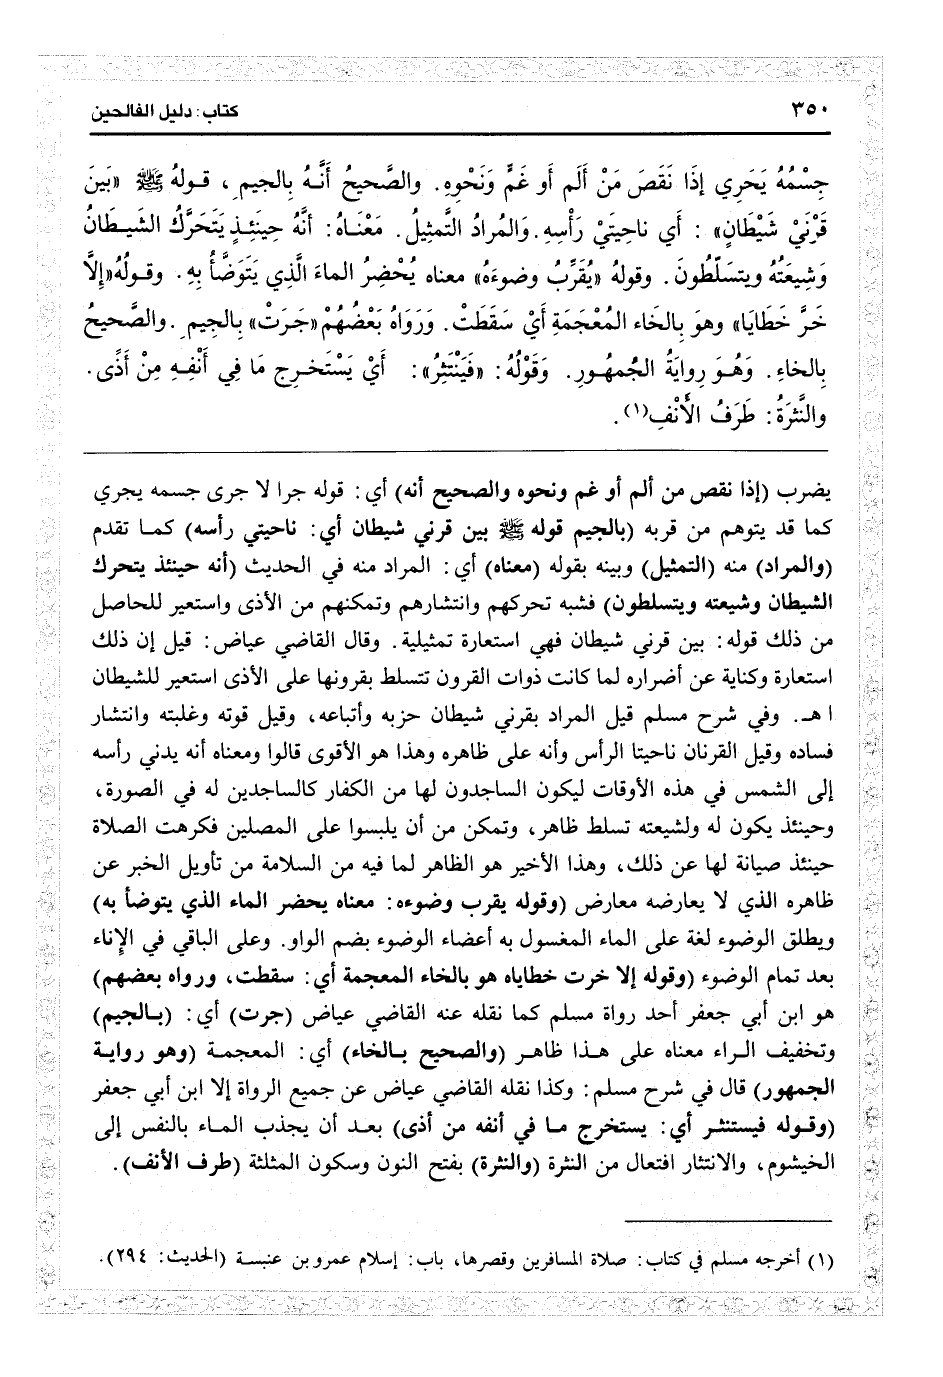 ٣٥٠
كتاب: دليل الفالحين
جِسْمُهُ يَحَرِي إذَا نَقَصَ مَنْ أَلَم أَو غَمٍّ وَنَحْوِهِ. والصَّحيحُ أَنَّـهُ بِالجيمِ ، قـولهُ ﷺ «بَينَ
قَرْنَيْ شَيْطَانٍ» : أَي ناحيتَيْ رَأْسِهِ. وَالمُرادُ التَّمثِيلُ. مَعْنَـاهُ: أنَّهُ حِينَئِـذٍ يَتَحَرَّكُ الشَّيطَـانُ
وَشِيعَتُهُ ويتسَلّطُونَ. وقولهُ «يُقَرِّبُ وضوءَهُ» معناه يُحْضِرُ الماءَ الَّذِي يَتَوَضَّأُ بِهِ. وقـولهُ«إلَّا
خَرَّ خَطَايَا» وهوَ بِالخَاء المُعْجَمَةِ أَيْ سَقَطَتْ. وَرَوَاهُ بَعْضُهُمْ«جَرَتْ» بِالجيمِ .والصَّحيحُ
بِالخَاءِ. وَهُـوَ رِوايَةُ الجُمهُـورِ. وَقَوْلُهُ: «فَيَنْتَثِرُ»: أَيْ يَسْتَخـرِج مَا فِي أَنْفِـهِ مِنْ أَذًى.
والنَّثرَةُ: طَرَفُ الأَنْفِ(١).
يضرب (إذا نقص من ألم أو غم ونحوه والصحيح أنه) أي: قوله جرا لا جرى جسمه يجري
كما قد يتوهم من قربه (بالجيم قوله ﷺ بين قرني شيطان أي: ناحيتي رأسه) كمـا تقدم
(والمراد) منه (التمثيل) وبينه بقوله (معناه) أي: المراد منه في الحديث (أنه حينئذ يتحرك
الشيطان وشيعته ويتسلطون) فشبه تحركهم وانتشارهم وتمكنهم من الأذى واستعير للحاصل
من ذلك قوله: بين قرني شيطان فهي استعارة تمثيلية. وقال القاضي عياض: قيل إن ذلك
استعارة وكناية عن أضراره لما كانت ذوات القرون تتسلط بقرونها على الأذى استعير للشيطان
ا هـ. وفي شرح مسلم قيل المراد بقرني شيطان حزبه وأتباعه، وقيل قوته وغلبته وانتشار
فساده وقيل القرنان ناحيتا الرأس وأنه على ظاهره وهذا هو الأقوى قالوا ومعناه أنه يدني رأسه
إلى الشمس في هذه الأوقات ليكون الساجدون لها من الكفار كالساجدين له في الصورة،
وحينئذ يكون له ولشيعته تسلط ظاهر، وتمكن من أن يلبسوا على المصلين فكرهت الصلاة
حينئذ صيانة لها عن ذلك، وهذا الأخير هو الظاهر لما فيه من السلامة من تأويل الخبر عن
ظاهره الذي لا يعارضه معارض (وقوله يقرب وضوءه: معناه يحضر الماء الذي يتوضأ به)
ويطلق الوضوء لغة على الماء المغسول به أعضاء الوضوء بضم الواو. وعلى الباقي في الإناء
بعد تمام الوضوء (وقوله إلا خرت خطاياه هو بالخاء المعجمة أي: سقطت، ورواه بعضهم)
هو ابن أبي جعفر أحد رواة مسلم كما نقله عنه القاضي عياض (جرت) أي: (بـالجيم)
وتخفيف الـراء معناه على هـذا ظاهـر (والصحيح بـالخاء) أي: المعجمة (وهو روايـة
الجمهور) قال في شرح مسلم: وكذا نقله القاضي عياض عن جميع الرواة إلا ابن أبي جعفر
(وقـوله فيستنثـر أي: يستخرج مـا في أنفه من أذى) بعـد أن يجذب المـاء بالنفس إلى
الخيشوم، والانتثار افتعال من النثرة (والنثرة) بفتح النون وسكون المثلثة (طرف الأنف).
(١) أخرجه مسلم في كتاب: صلاة المسافرين وقصرها، باب: إسلام عمرو بن عنبسة (الحديث: ٢٩٤).